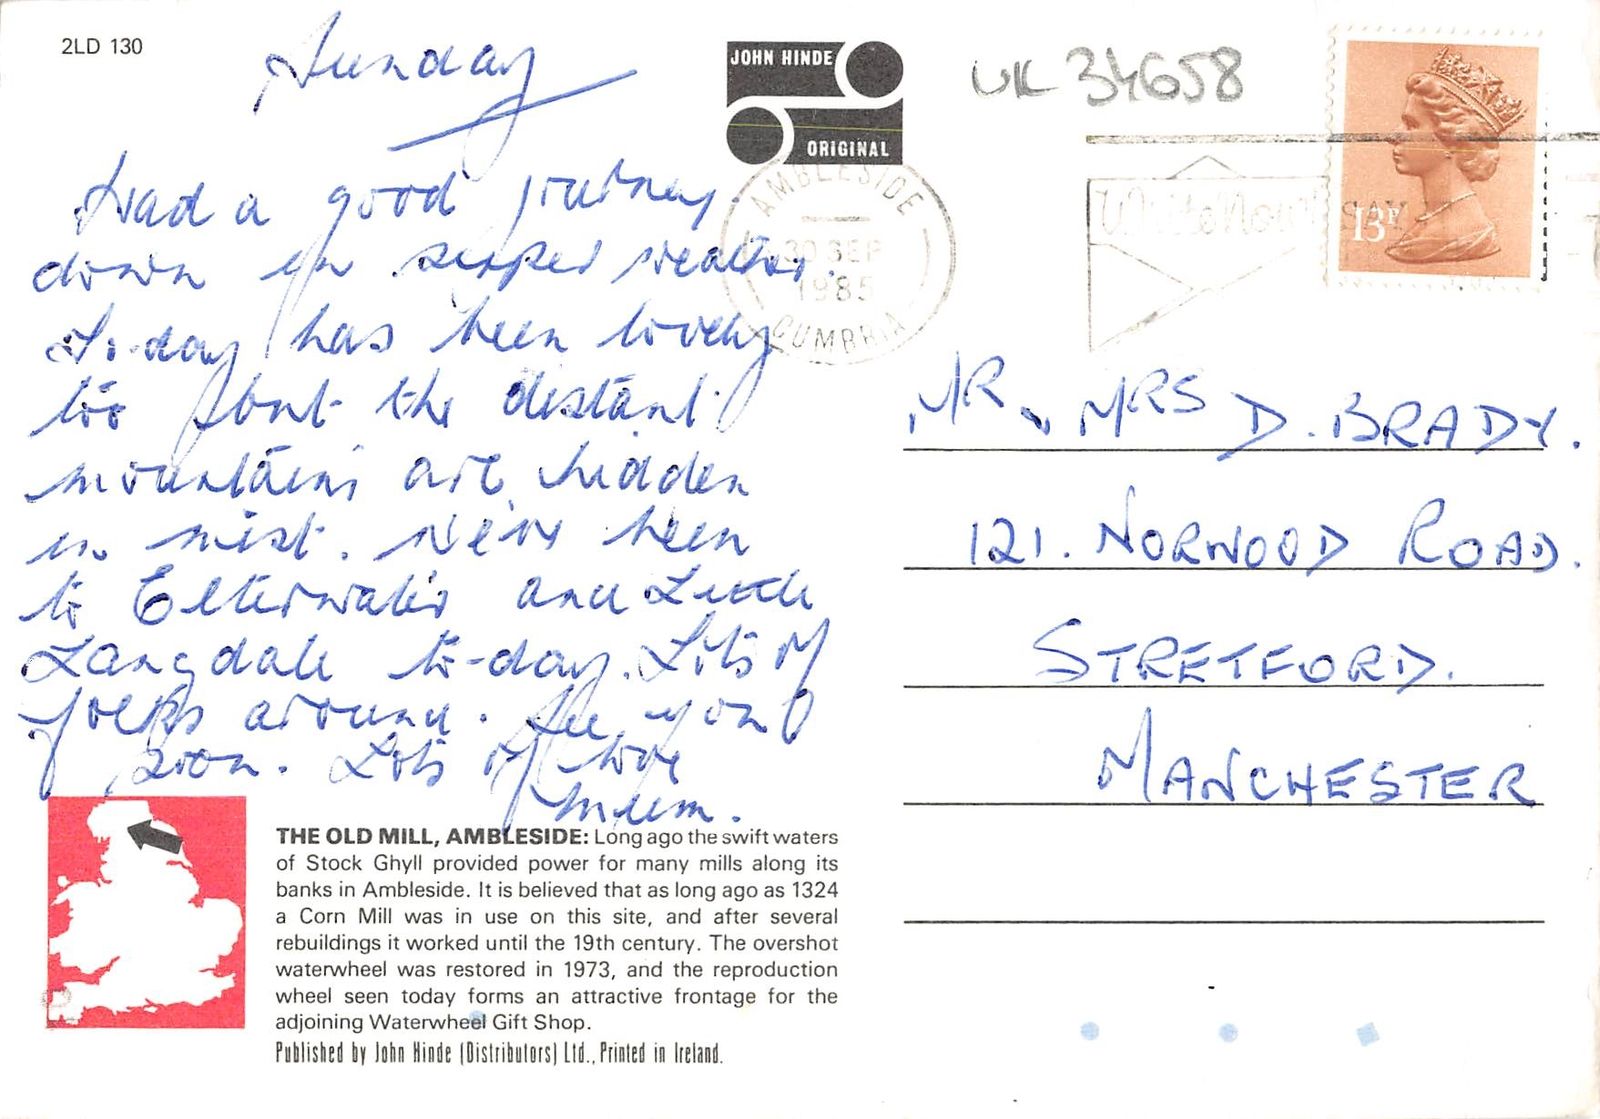 2LD 130
Sunday
Had a good journey
down in super weather.
To-day has been lovely
too but the distant
mountains are hidden
in mist. We've been
to Elterwater and Little
Langdale to-day. Lots of
folks around. See you
soon. Lots of love
JOHN HINDE
ORIGINAL
UK 34658
AMBLESIDE
30 SEP
1985
CUMBRIA
Write Now
13P
MR, MRS D. BRADY.
121. NORWOOD ROAD.
STRETFORD.
MANCHESTER
THE OLD MILL, AMBLESIDE: Long ago the swift waters
of Stock Ghyll provided power for many mills along its
banks in Ambleside. It is believed that as long ago as 1324
a Corn Mill was in use on this site, and after several
rebuildings it worked until the 19th century. The overshot
waterwheel was restored in 1973, and the reproduction
wheel seen today forms an attractive frontage for the
adjoining Waterwheel Gift Shop.
Published by John Hinde (Distributors) Ltd., Printed in Ireland.